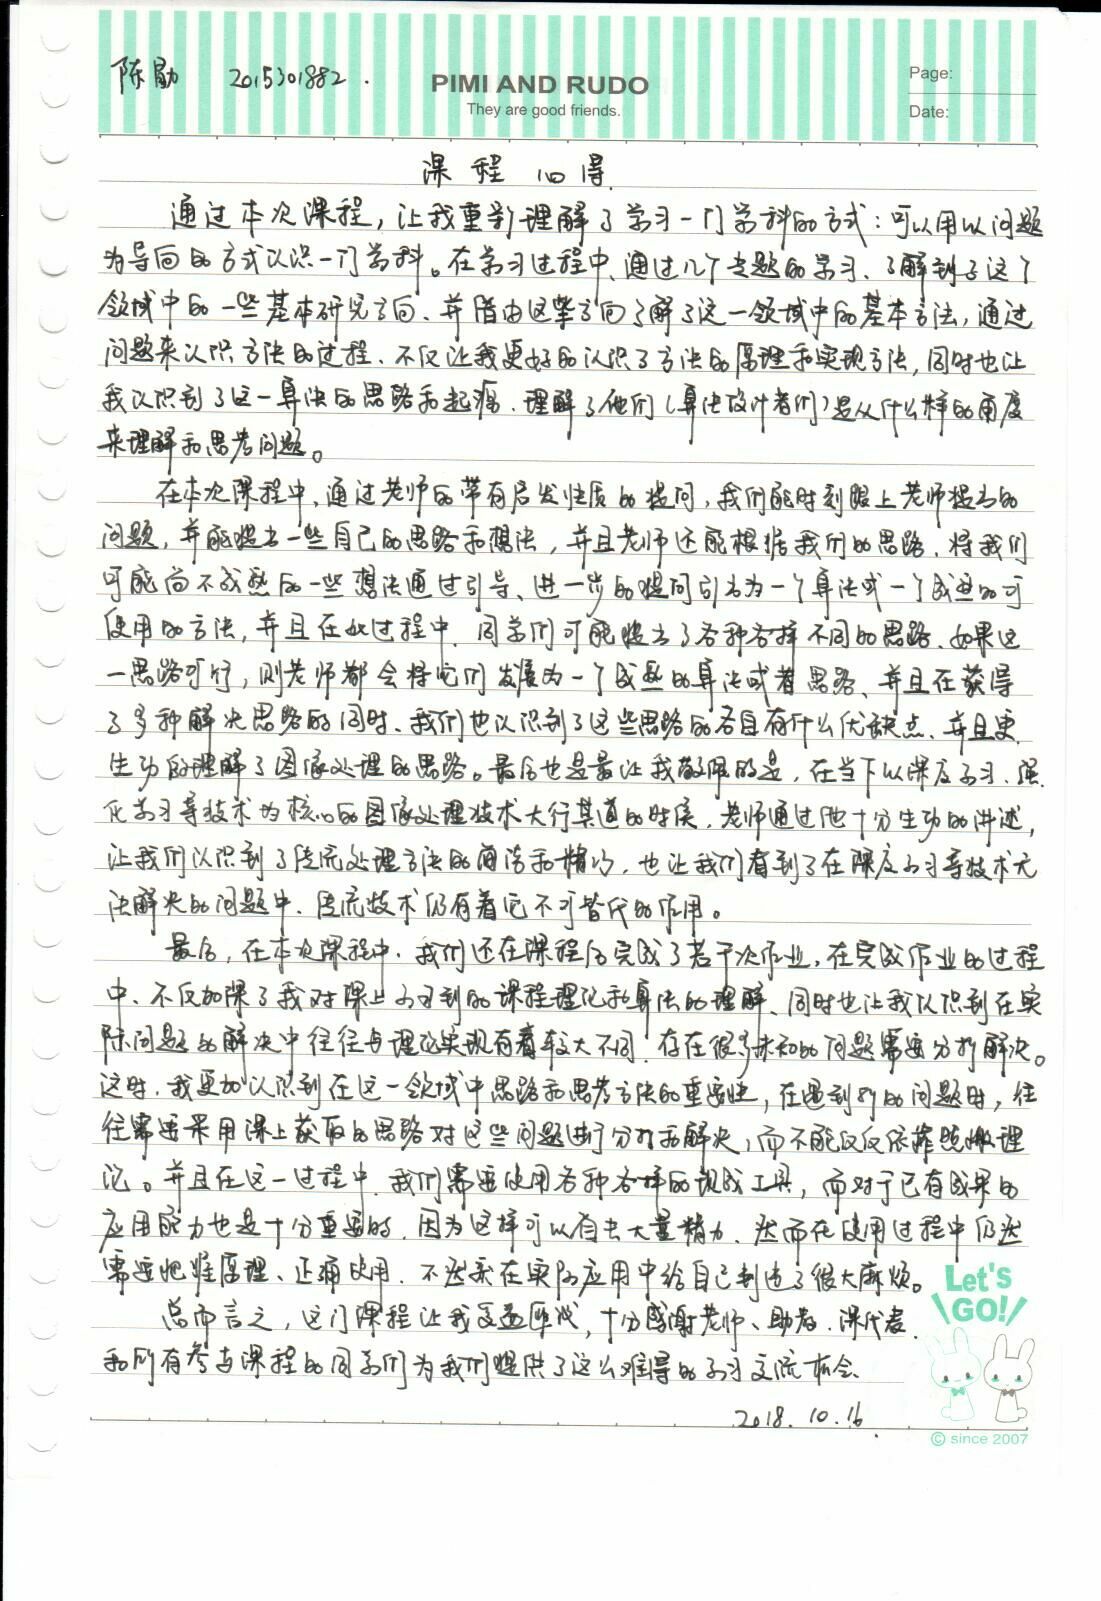 陈勋 2015301882.
PIMI AND RUDO
They are good friends.
Page:
Date:
课程心得.
通过本次课程，让我重新理解了学习一门学科的方式：可以用以问题
为导向的方式认识一门学科。在学习过程中、通过几个专题的学习、了解到了这个
领域中的一些基本研究方向、并借由这些方向了解了这一领域中的基本方法，通过
问题来认识方法的过程、不仅让我更好的认识了方法的原理和实现方法，同时也让
我认识到了这一算法的思路和起源、理解了他们（算法设计者们）是从什么样的角度
来理解和思考问题。
在本次课程中、通过老师的带有启发性质的提问，我们能时刻跟上老师提出的
问题，并能提出一些自己的思路和想法，并且老师还能根据我们的思路、将我们
可能尚不成熟的一些想法通过引导、进一步的提问引出为一个算法或一个成熟的可
使用的方法，并且在此过程中、同学们可能提出了各种各样不同的思路、如果这
一思路可行，则老师都会将它们发展为一个成熟的算法或者思路、并且在获得
了多种解决思路的同时、我们也认识到了这些思路的各自有什么优缺点、并且更
生动的理解了图像处理的思路。最后也是最让我敬佩的是，在当下以深度学习、强
化学习等技术为核心的图像处理技术大行其道的时候，老师通过他十分生动的讲述，
让我们认识到了传统处理方法的简洁和精巧，也让我们看到了在深度学习等技术无
法解决的问题中、传统技术仍有着它不可替代的作用。
最后，在本次课程中、我们还在课程后完成了若干次作业，在完成作业的过程
中、不仅加深了我对课上学习到的课程理论和算法的理解、同时也让我认识到在实
际问题的解决中往往与理论实现有着较大不同、存在很多未知的问题需要分析解决。
这时、我更加认识到在这一领域中思路和思考方法的重要性，在遇到新的问题时，往
往需要采用课上获取的思路对这些问题进行分析和解决，而不能仅仅依靠照搬理
论。并且在这一过程中、我们需要使用各种各样的现成工具，而对于已有成果的
应用能力也是十分重要的，因为这样可以省去大量精力、然而在使用过程中仍然
需要把准原理、正确使用、不然会在实际应用中给自己制造了很大麻烦。
总而言之，这门课程让我受益匪浅，十分感谢老师、助教、课代表、
和所有参与课程的同学们为我们提供了这么难得的学习交流机会.
2018.10.16
Let's
GO!
© since 2007